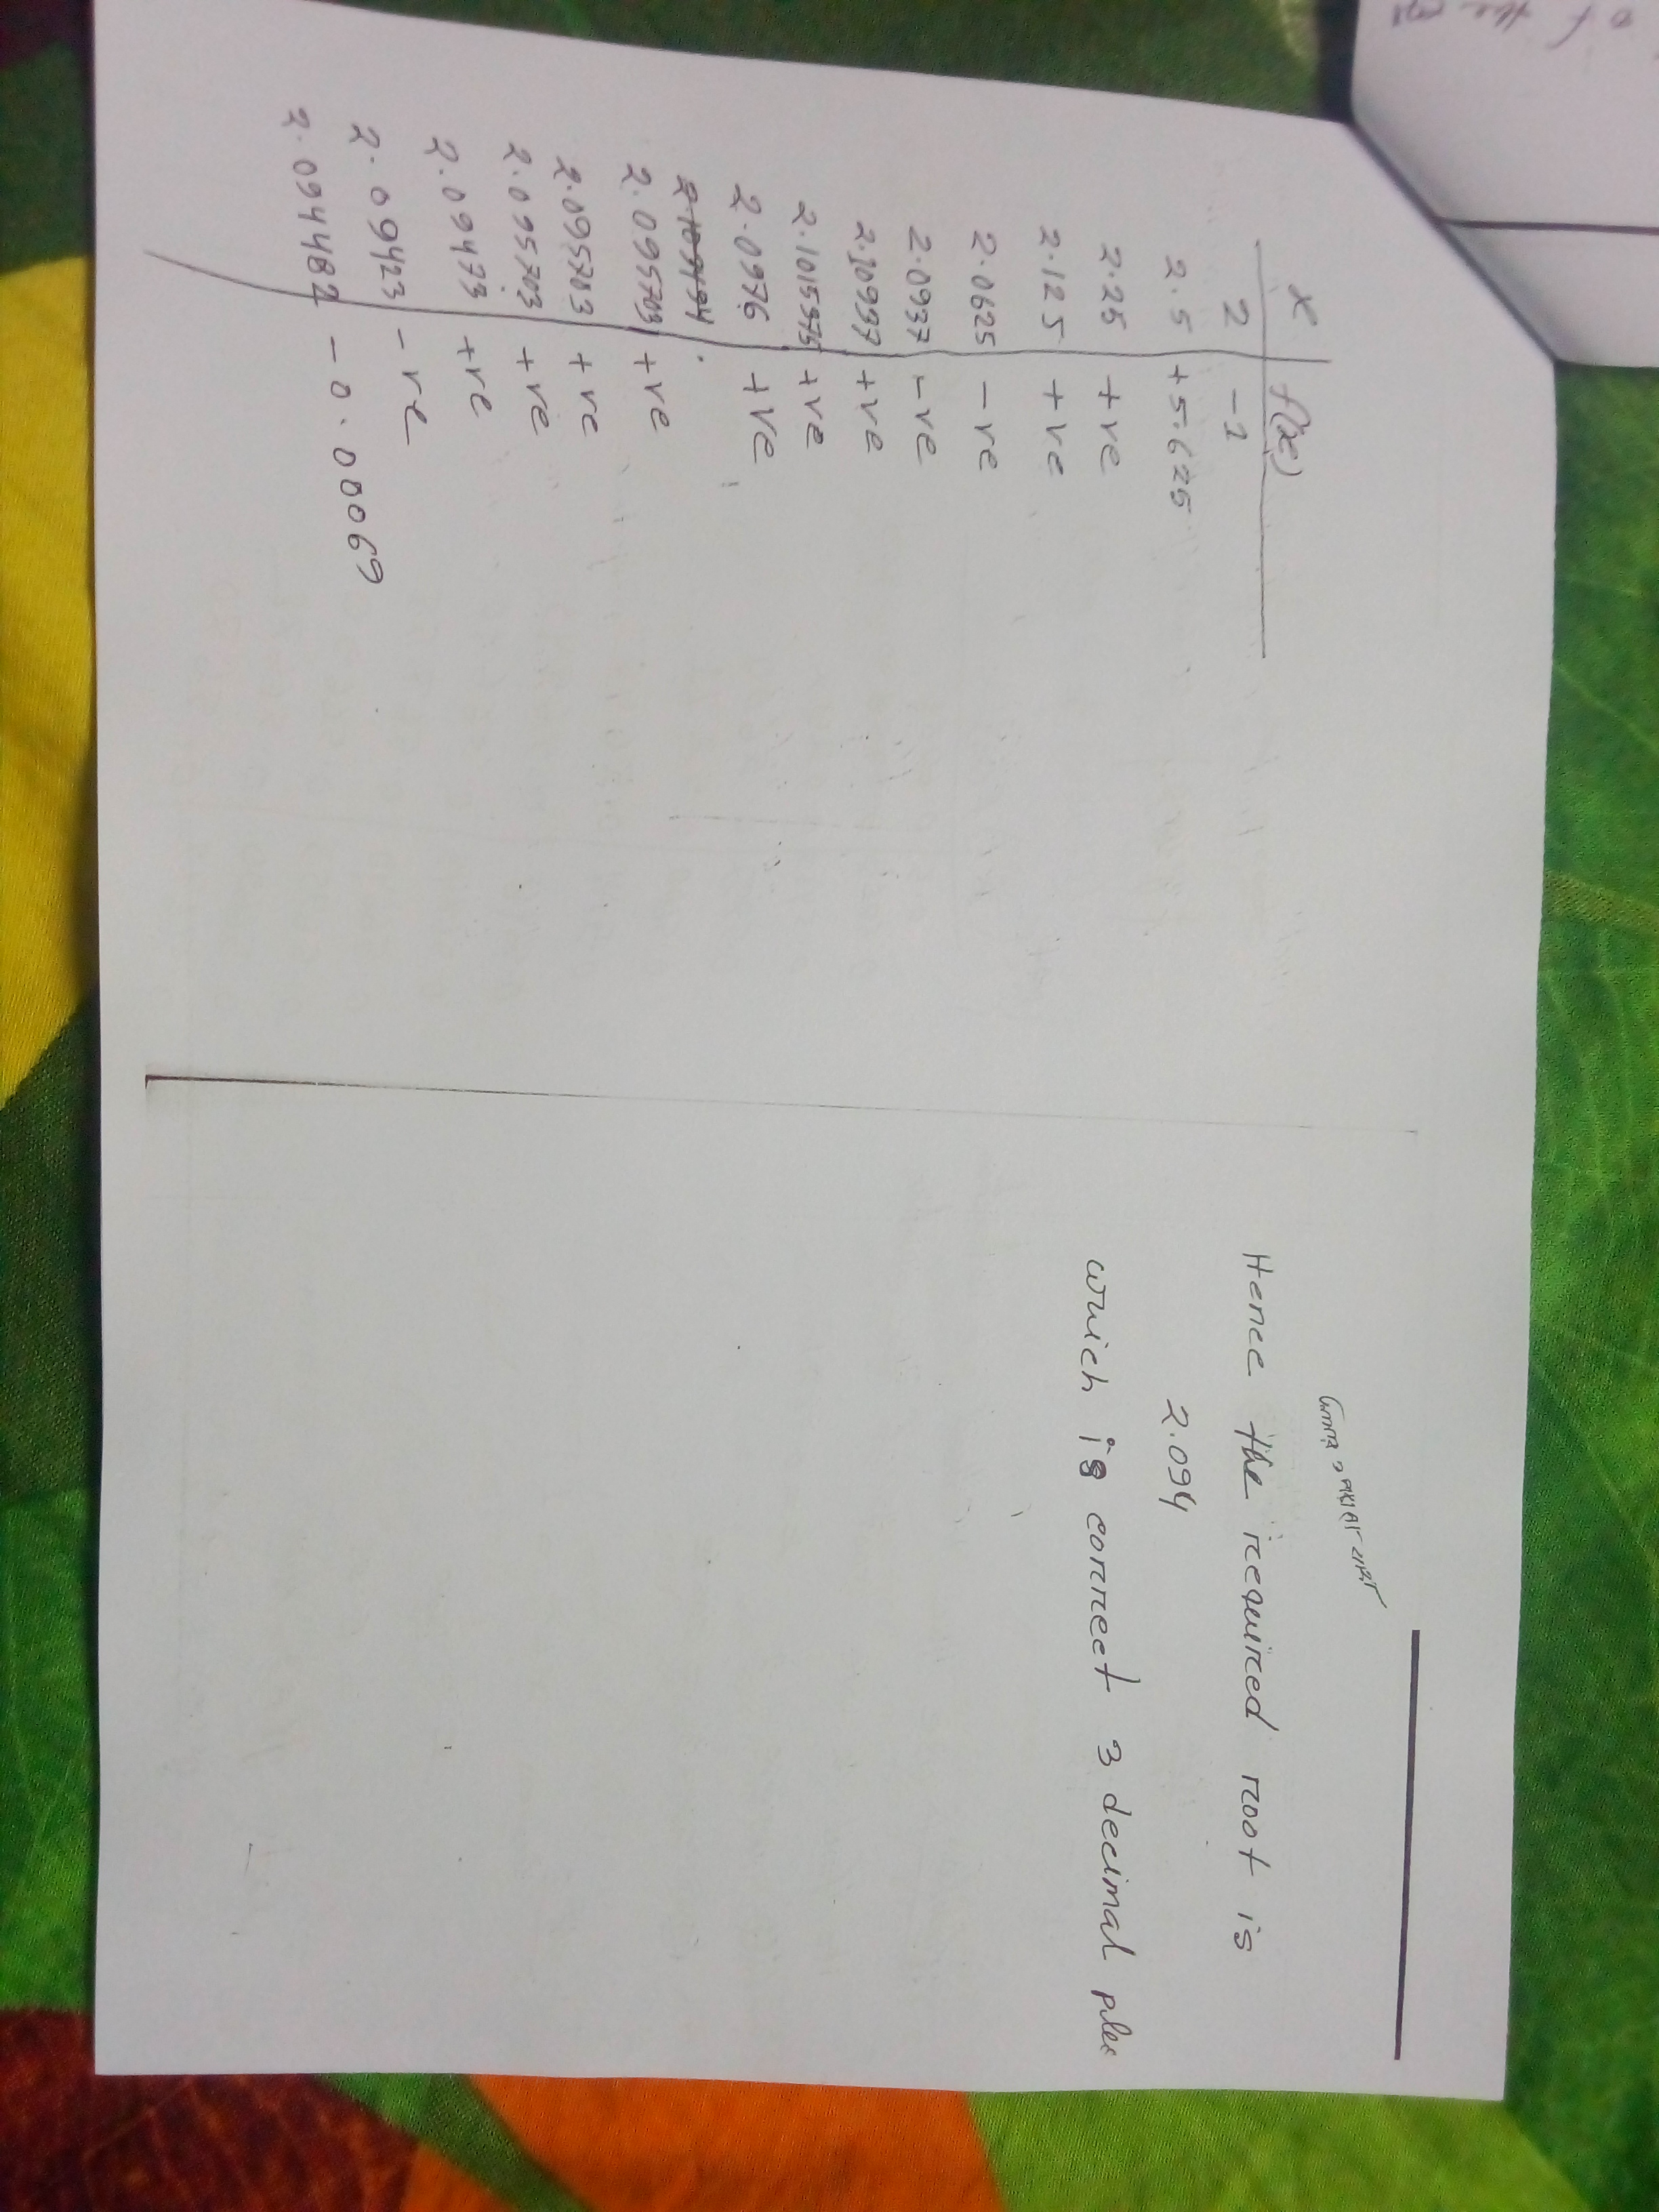 of the eqn
x f(x)
2 -1
2.5 +5.625
2.25 +ve
2.125 +ve
2.0625 -ve
2.0937 -ve
2.10937 +ve
2.1015375 +ve
2.0976 +ve
2.095703 +ve
2.095703 +ve
2.095703 +ve
2.09473 +ve
2.09423 -ve
2.094482 -0.00069
Hence the required root is
2.094
which is correct 3 decimal